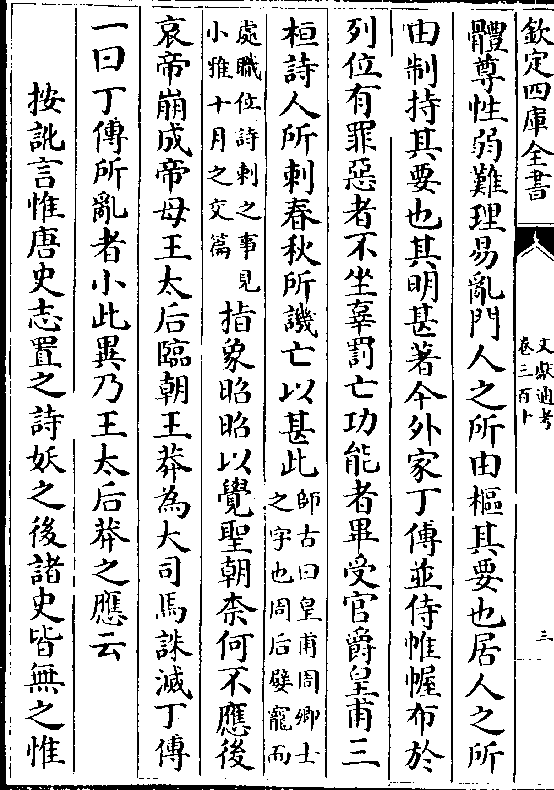 欽定四庫全書
文獻通考
卷三百十
三
體尊性弱難理易亂門人之所由樞其要也居人之所
由制持其要也其明甚著今外家丁傅並侍帷幄布於
列位有罪惡者不坐辜罰亡功能者畢受官爵皇甫三
桓詩人所刺春秋所譏亡以甚此師古曰皇甫周卿士之字也周后嬖寵而
處職位詩刺之事見小雅十月之交篇指象昭昭以覺聖朝柰何不應後
哀帝崩成帝母王太后臨朝王莽為大司馬誅滅丁傅
一曰丁傅所亂者小此異乃王太后莽之應云
按訛言惟唐史志置之詩妖之後諸史皆無之惟